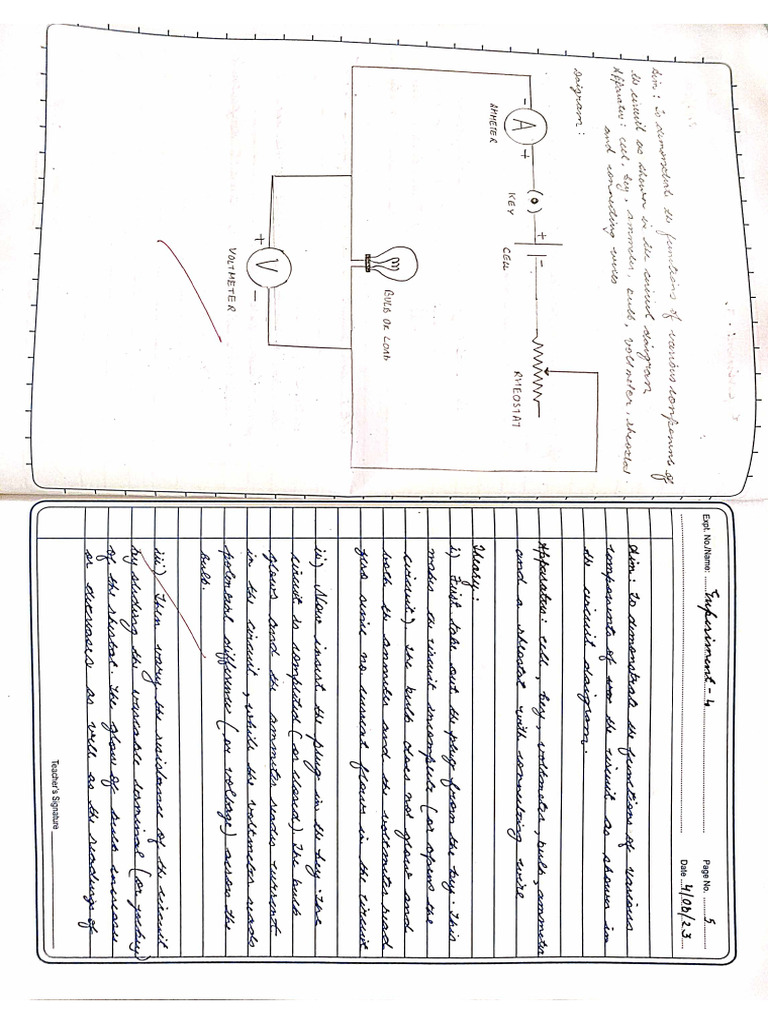 Aim: To demonstrate the functions of various components of
the circuit as shown in the circuit daigram
Apparatus: cell, key, ammeter, bulb, voltmeter, rheostat
and connecting wires
Daigram:
- A +
AMMETER
KEY
+ -
CELL
RHEOSTAT
BULB OR LOAD
+ V -
VOLTMETER
Expt. No./Name: Experiment - 4
Page No. 5
Date 4/08/23
Aim: To demonstrate the functions of various
components of the circuit as shown in
the circuit daigram.
Apparatus: cell, key, voltmeter, bulb, ammeter
and a rheostat with connecting wire
Theory:
i) First take out the plug from the key. This
makes a circuit incomplete (or opens the
circuit). The bulb does not glow and
both the ammeter and the voltmeter read
zero since no current flows in the circuit
ii) Now insert the plug in the key. The
circuit is completed (or closed). The bulb
glows and the ammeter reads current
in the circuit, while the voltmeter reads
potential difference (or voltage) across the
bulb.
iii) Then vary the resistance of the circuit
by sliding the variable terminal (or jockey)
of the rheostat. The glow of bulb increases
or decreases as well as the readings of
Teacher's Signature